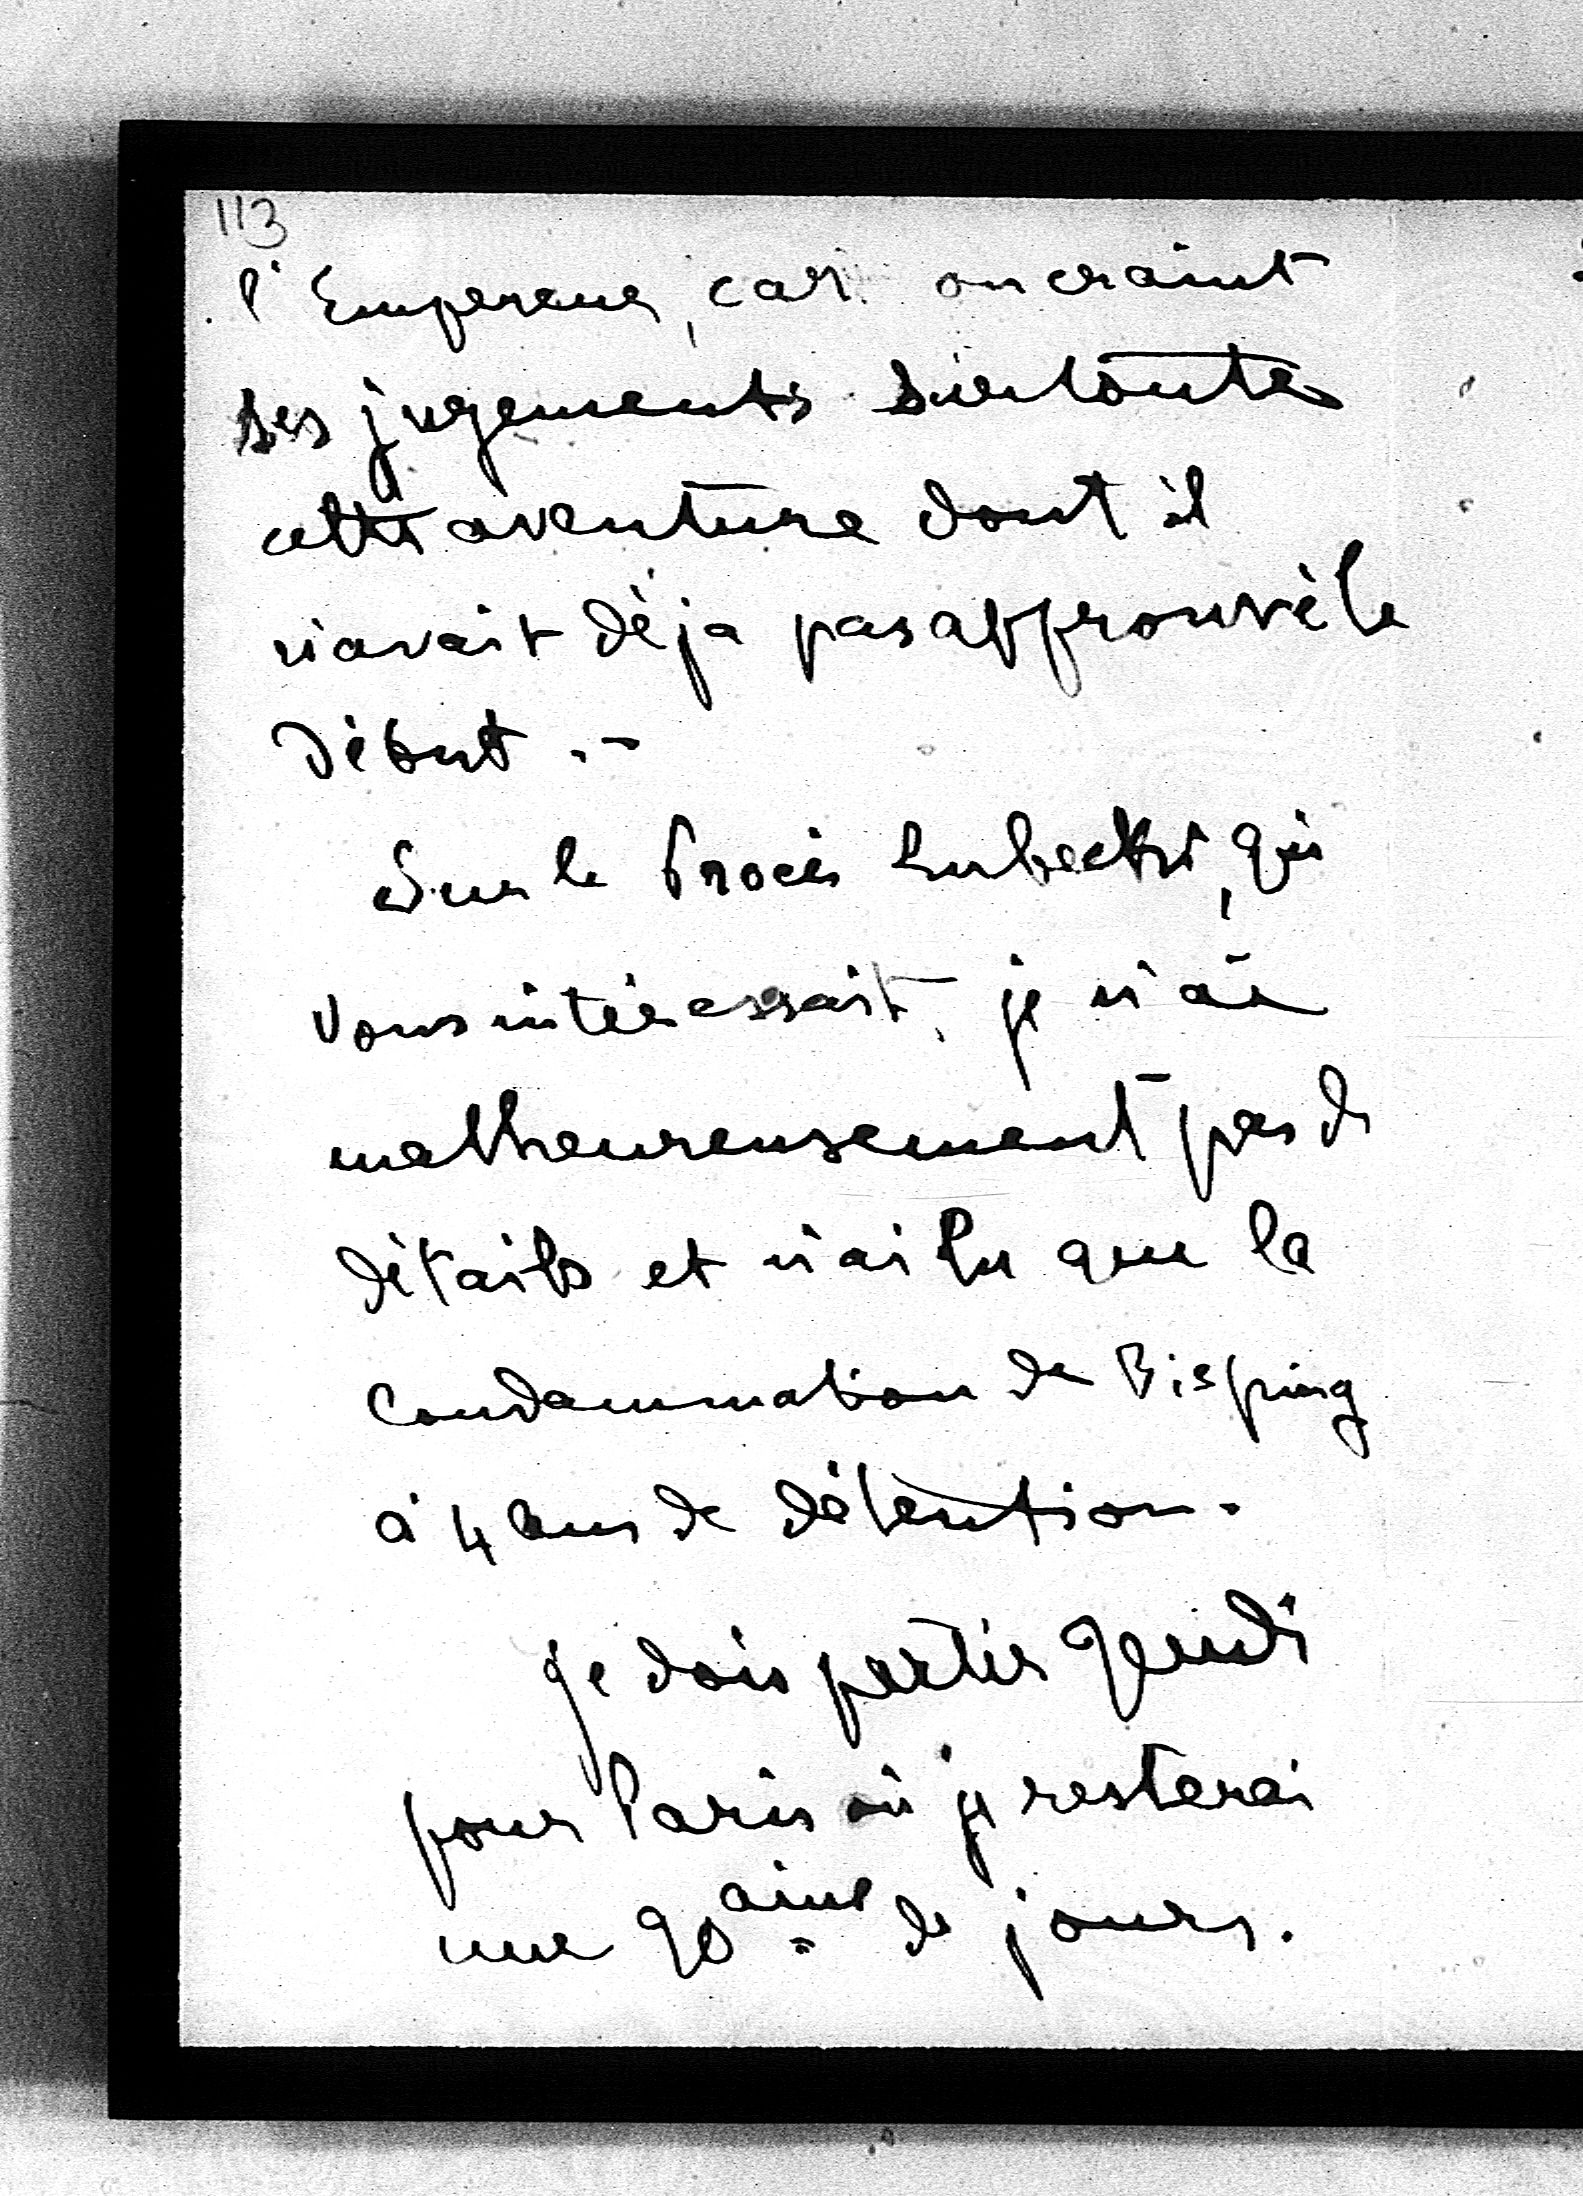 113
l'Empereur, car on craint
ses jugements sur toute
cette aventure dont il
n'avait déjà pas approuvé le
début . -
Sur le Procès Lubecki, qui
vous intéressait, je n'ai
malheureusement pas de
détails et n'ai lu que la
Condammation de Bisping
à 4 ans de détention.
Je dois partir Jeudi
pour Paris où je resterai
une 90aine de jours.